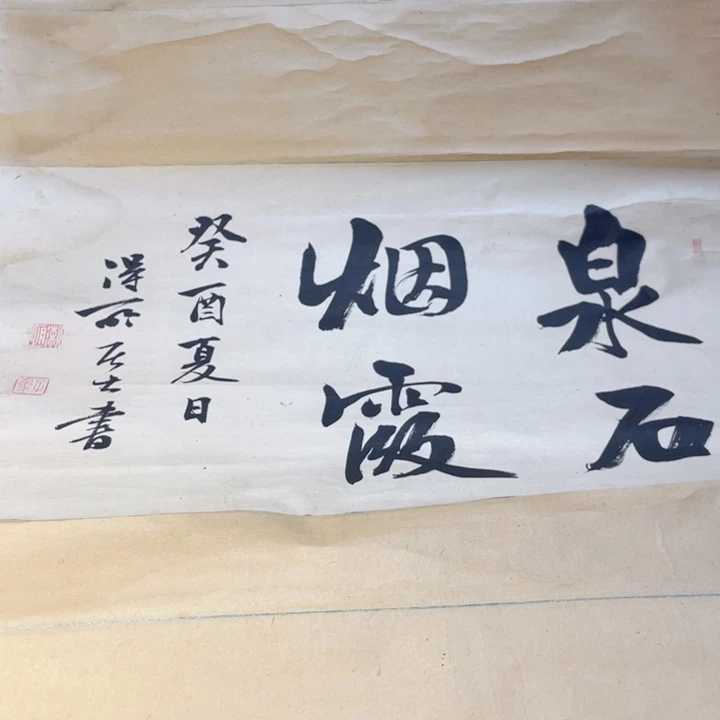 泉石
烟霞
癸酉夏日
得所居士書